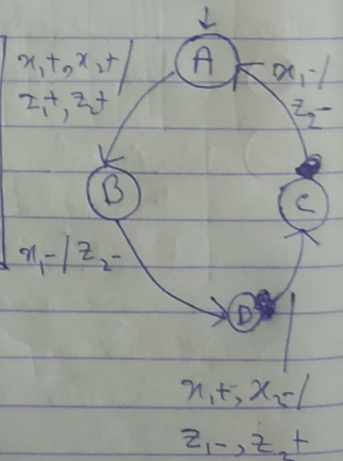 A
x₁+, x₂+/
z₁+, z₂+
x₁-/
z₂-
B
C
x₁-/z₂-
D
x₁+, x₂-/
z₁-, z₂+